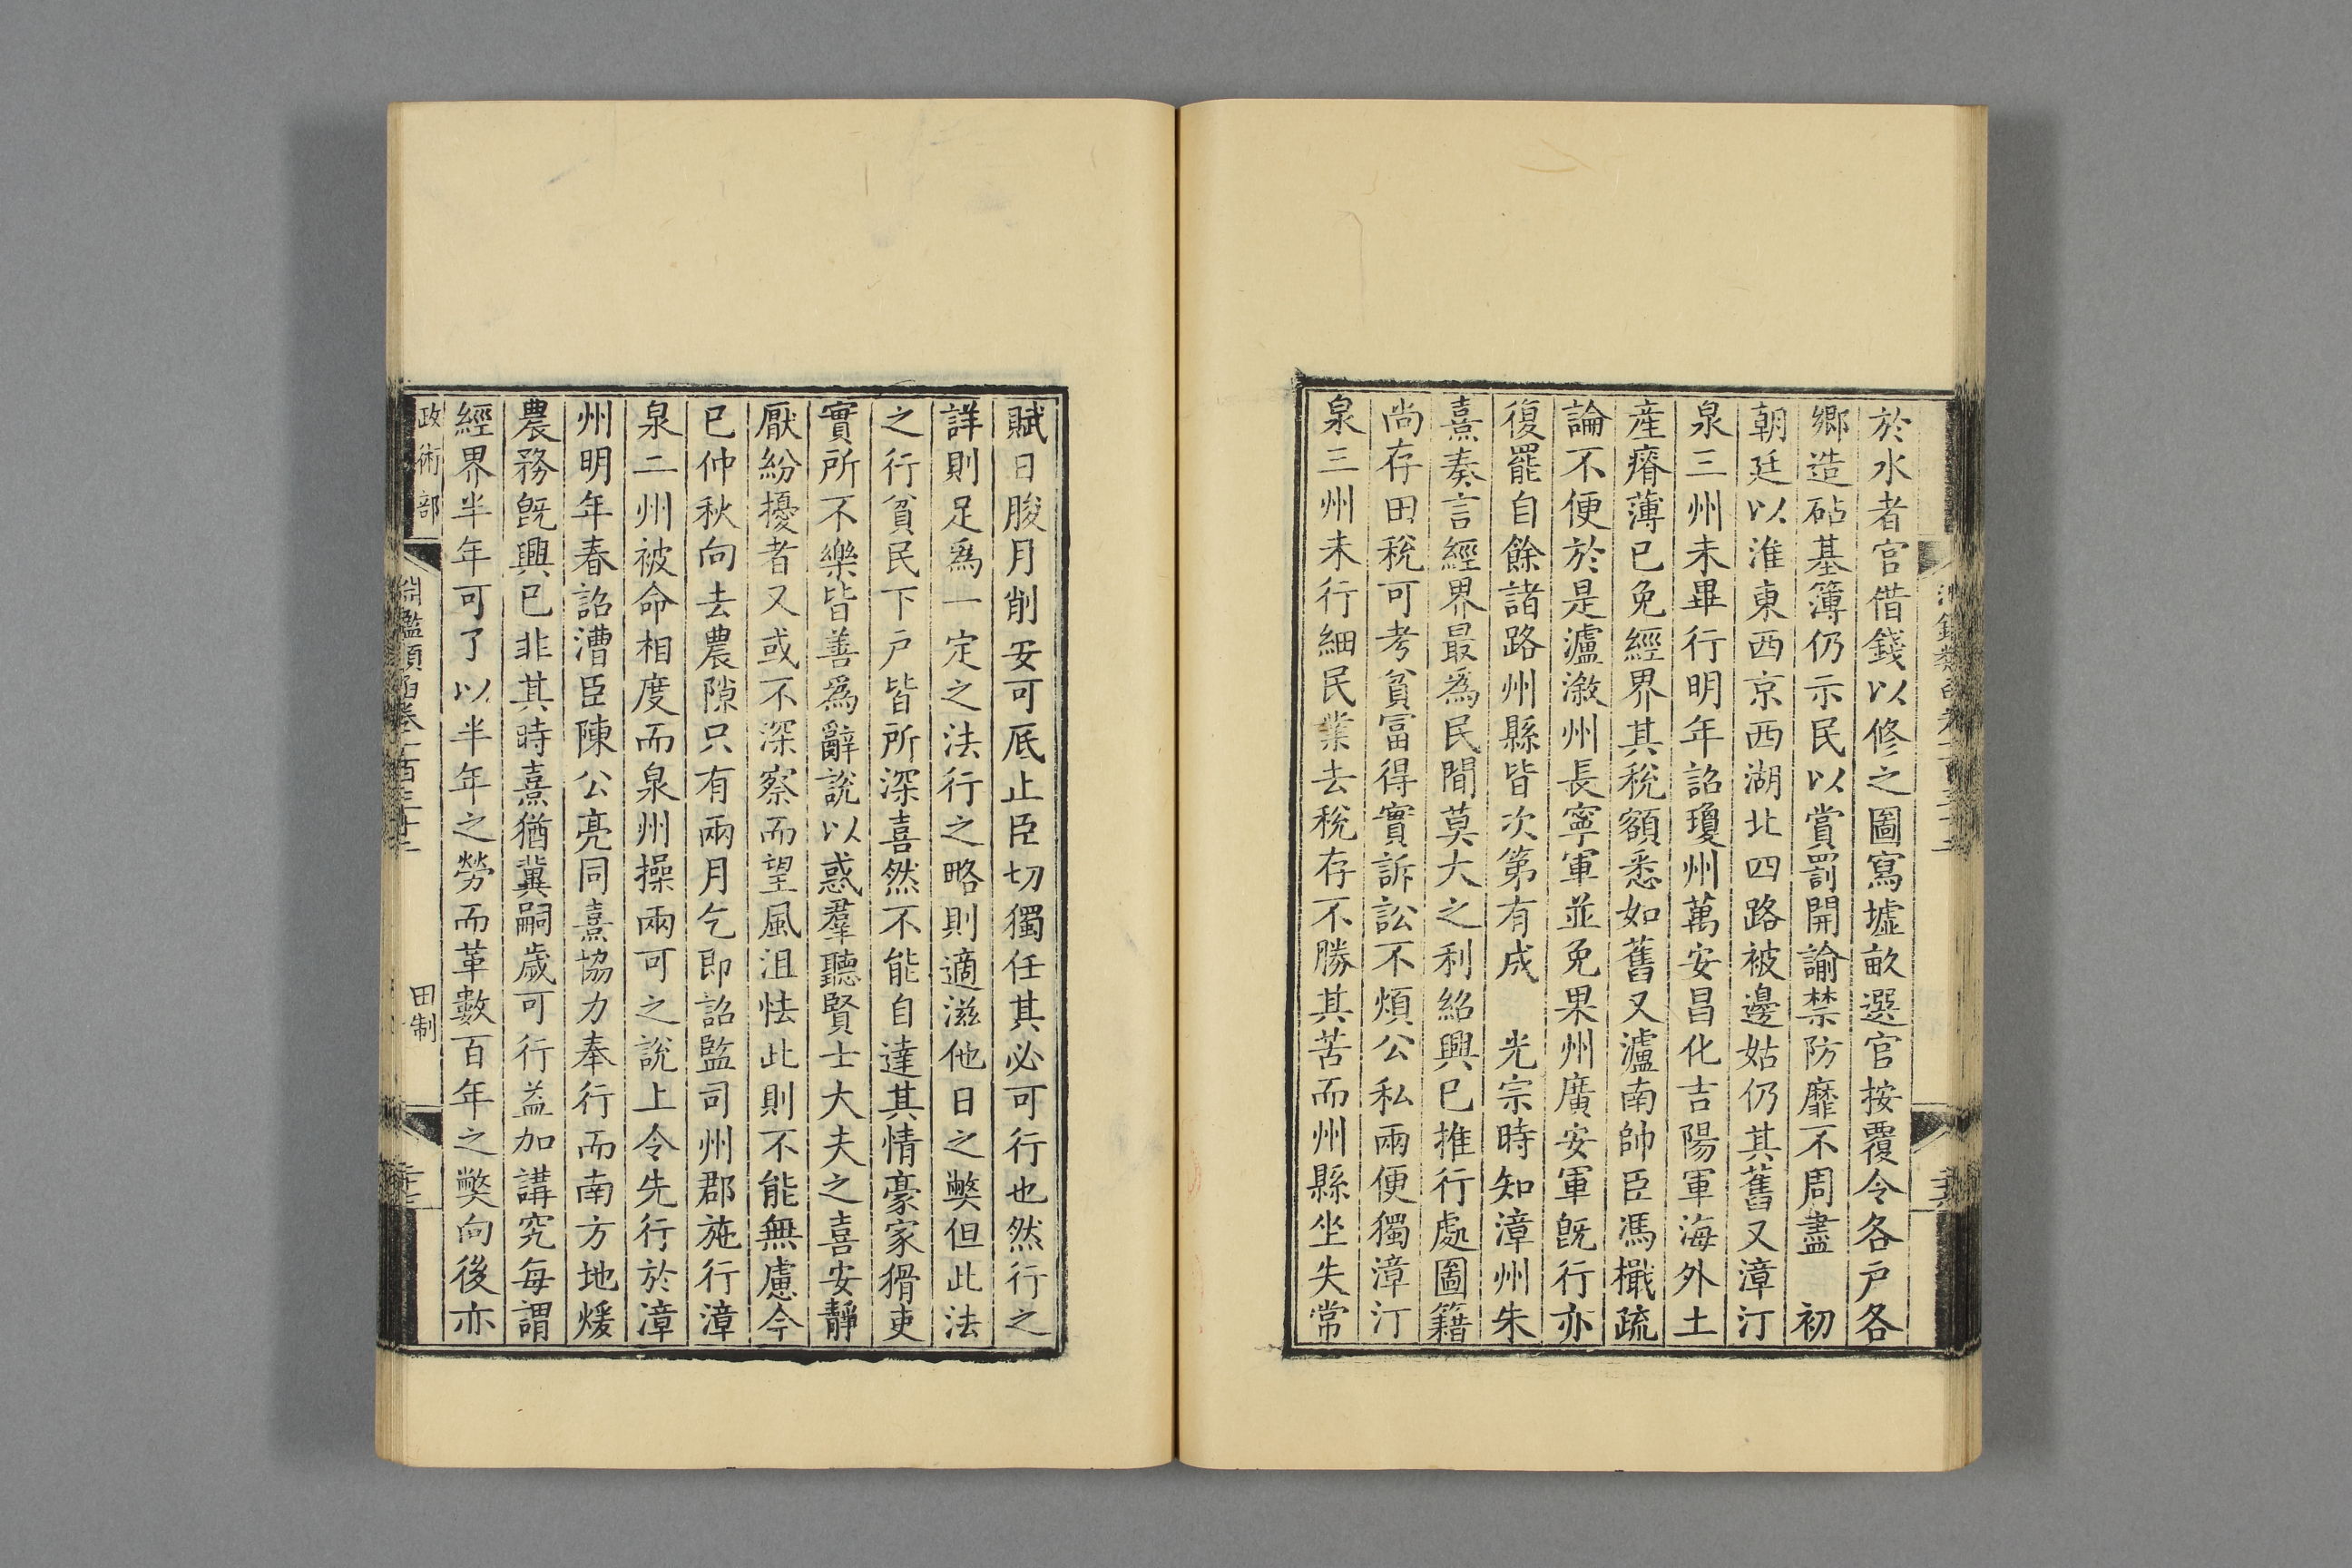 於水者官借錢以修之圖寫墟畝選官按覆令各戶各
鄉造砧基簿仍示民以賞罰開諭禁防靡不周盡　初
朝廷以淮東西京西湖北四路被邊姑仍其舊又漳汀
泉三州未畢行明年詔瓊州萬安昌化吉陽軍海外土
產瘠薄已免經界其稅額悉如舊又瀘南帥臣馮檝疏
論不便於是瀘漵州長寧軍並免果州廣安軍旣行亦
復罷自餘諸路州縣皆次第有成　光宗時知漳州朱
熹奏言經界最爲民間莫大之利紹興已推行處圖籍
尚存田稅可考貧富得實訴訟不煩公私兩便獨漳汀
泉三州未行細民業去稅存不勝其苦而州縣坐失常
賦日朘月削安可底止臣切獨任其必可行也然行之
詳則足爲一定之法行之略則適滋他日之弊但此法
之行貧民下戶皆所深喜然不能自達其情豪家猾吏
實所不樂皆善爲辭說以惑羣聽賢士大夫之喜安靜
厭紛擾者又或不深察而望風沮怯此則不能無慮今
已仲秋向去農隙只有兩月乞即詔監司州郡施行漳
泉二州被命相度而泉州操兩可之說上令先行於漳
州明年春詔漕臣陳公亮同熹協力奉行而南方地煖
農務旣興已非其時熹猶冀嗣歲可行益加講究每謂
經界半年可了以半年之勞而革數百年之弊向後亦
政術部
淵鑑類函卷一百三十二
田制